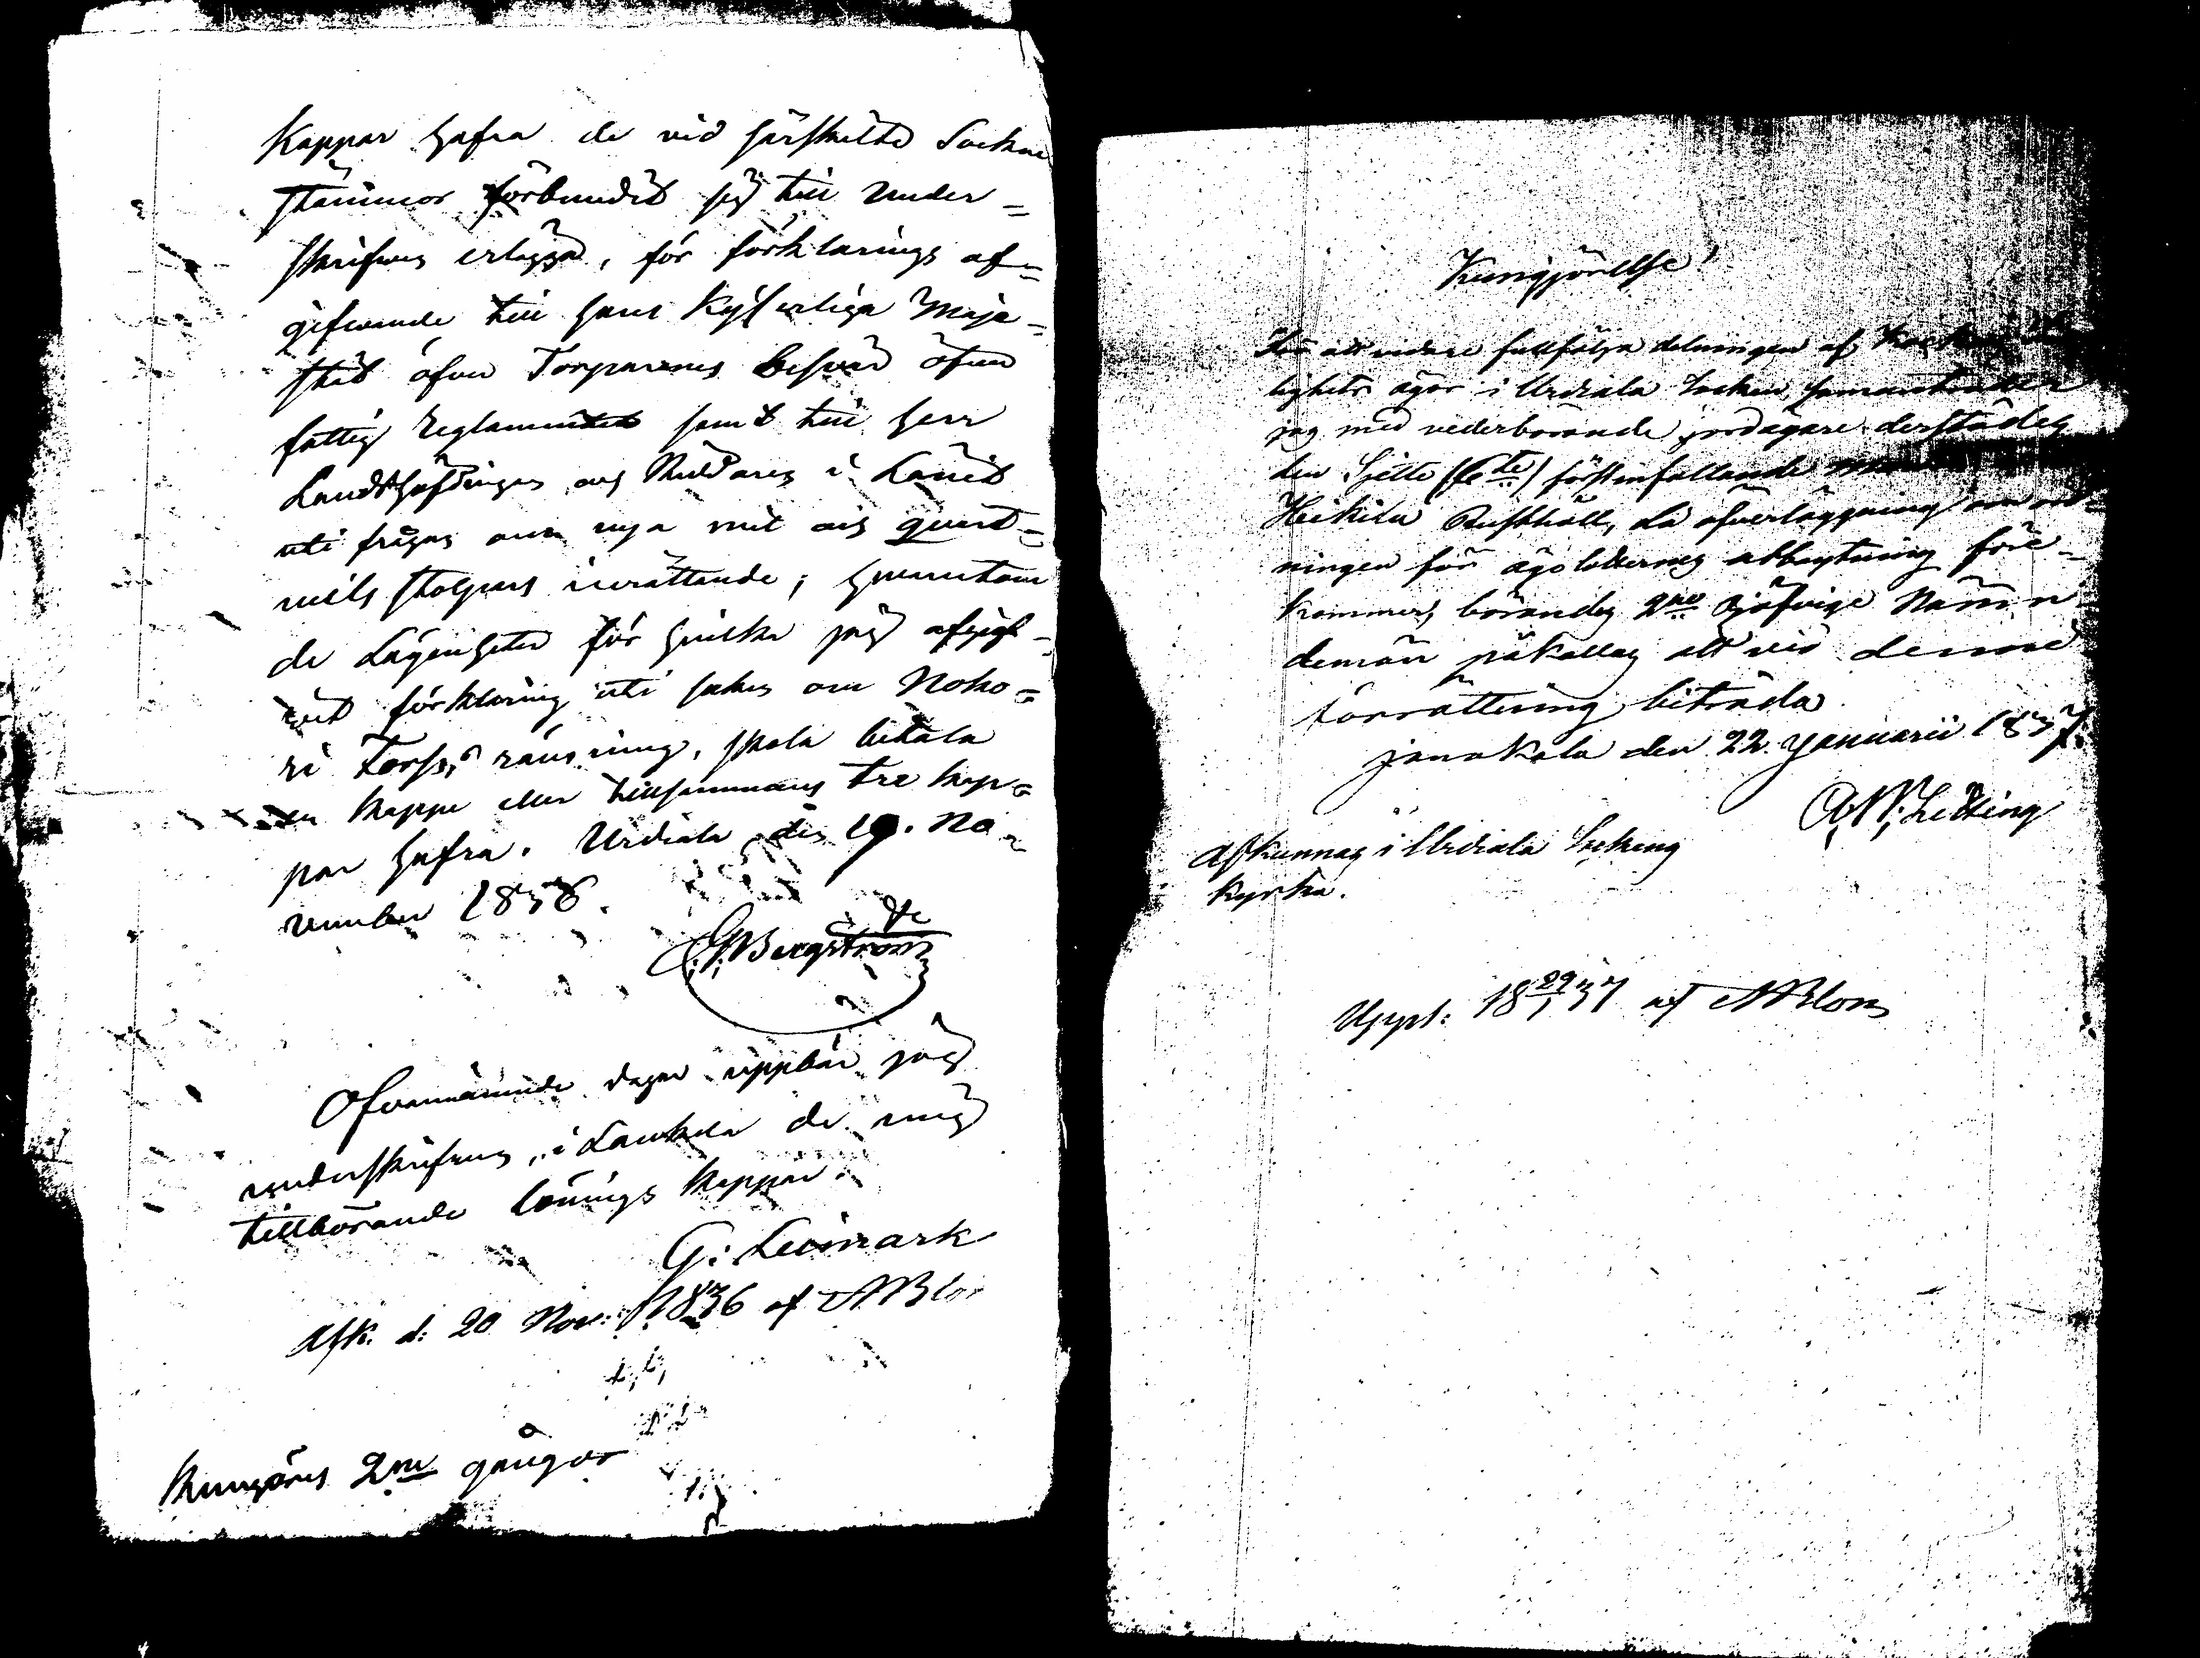 Kappar hafra de vid särskilte Sockne
stämmor förbundit sig till under-
skrifven erlägga, för förklarings af-
gifvande till Hans Kejserliga Maje-
stät öfver Torparenes besvär öfver
fattig Reglamentet samt till Herr
Landshöfdingen och Riddaren i Länet
uti frågan om nya mil och qvart-
mils stolpars inrättande; hvarutom
de Lägenheter för hvilka jag afgif-
vit förklaring uti saken om Noko-
ri Forss ränsning, skola betala
en kappe eller tillsammans tre kap-
par hafra. Urdiala den 19. No-
vember 1836.
Bergström
Ofvannämnde dagar uppbär jag
underskrifven, i Laukela de mig
tillhörande lönings kappar.
G: Leimark
Afk. d: 20 Nov: 1836 af ABlom
Kungöres 2ne gånger
Kungjörellse!
För att vidare fullfölja delningen af
lighets ägor i Urdiala Socken, sammanträder
jag med vederbörande jordägare derstädes
den Sjette (6te) förstinfallande
Heikila Rusthåll, då öfverläggning om
ningen för ägolotternes utbrytning före-
kommer, börandes 2ne Ojäfvige Nämn
demän påkallas att vid denna
förrättning biträda.
Janakala den 22. Januarii 1837.
Afkunnas i Urdiala Sockens
Kyrka.
Uppl: 18 29/1 37 af ABlom